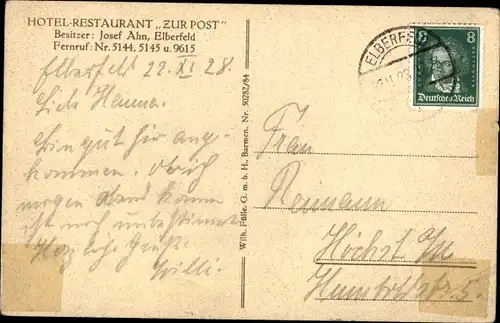 HOTEL-RESTAURANT „ZUR POST"
Besitzer: Josef Ahn, Elberfeld
Fernruf: Nr. 5144, 5145 u. 9615
Elberfeld 22. XI 28.
Liebe Hanna.
Bin gut hier ange-
kommen. Ob ich
morgen Abend komme
ist noch unbestimmt
Herzliche Grüße
Willi.
Wilh. Fülle. G. m. b. H. Barmen. Nr. 50282/84
ELBERFE
8 8
Deutsches Reich
Frau
Reimann
Höchst a/M
Humboldtstr. 5.